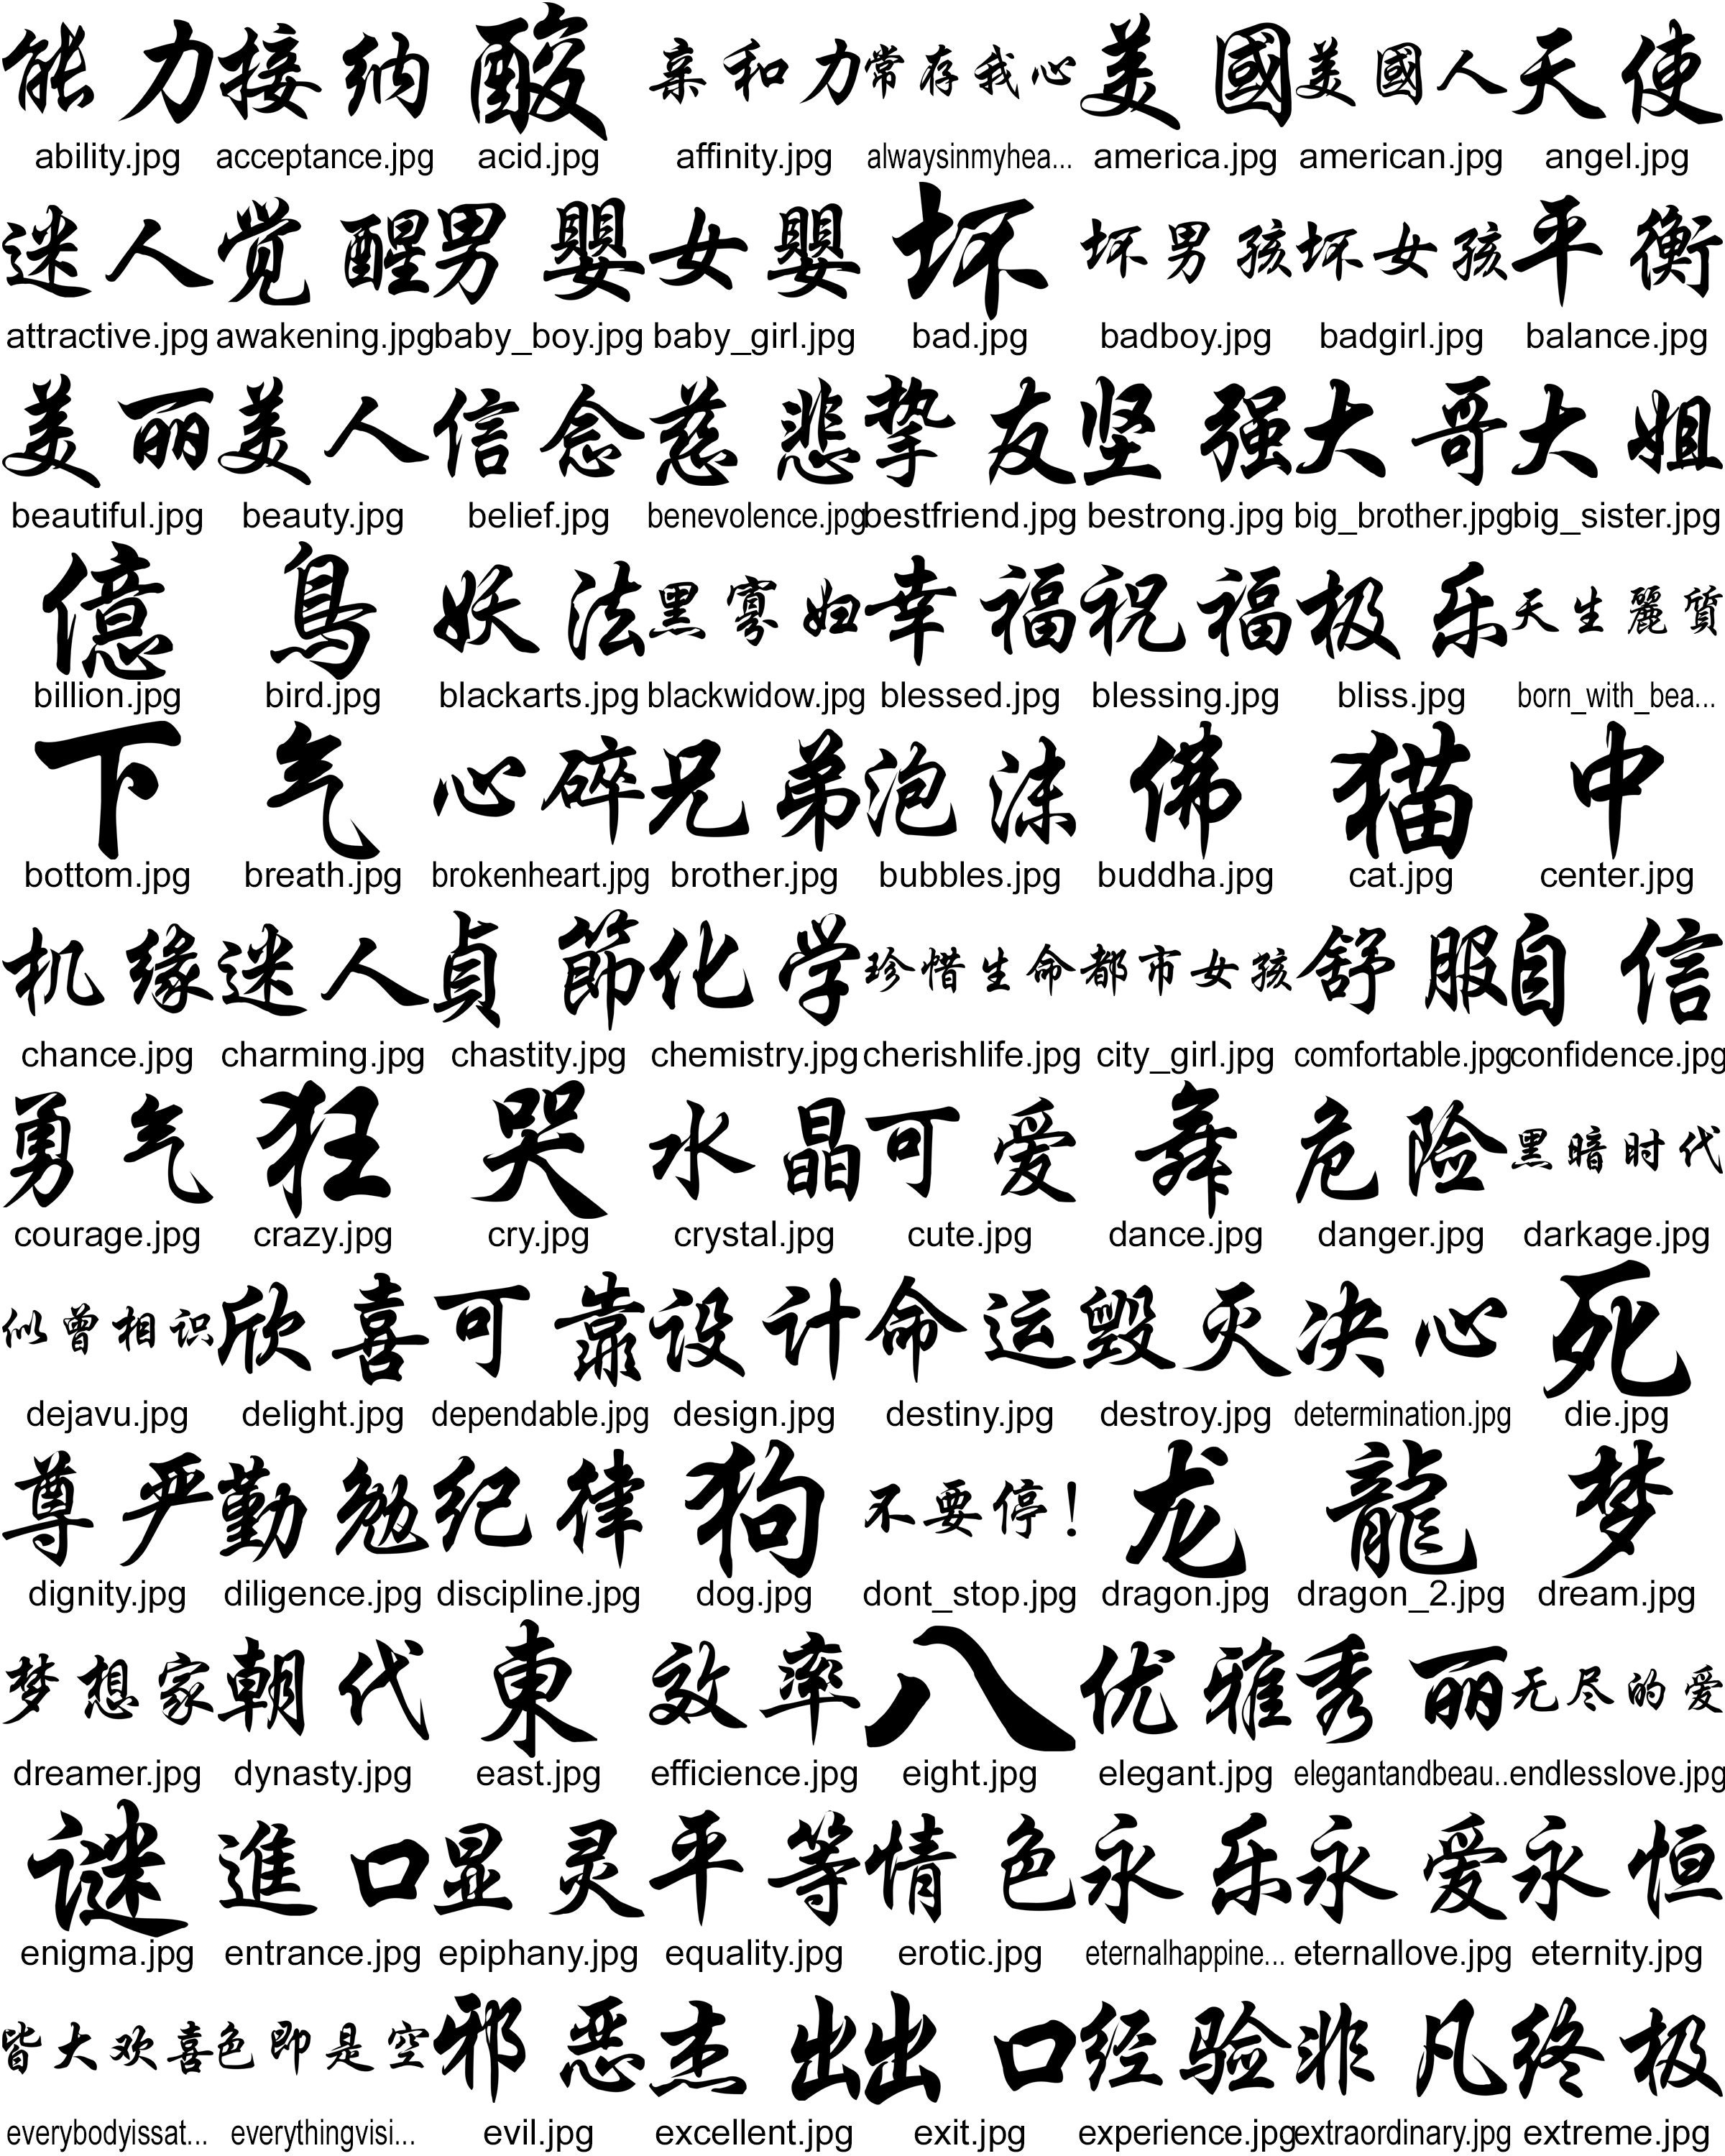 能力 接纳 酸 亲和力 常存我心 美國 美國人 天使
ability.jpg acceptance.jpg acid.jpg affinity.jpg alwaysinmyhea... america.jpg american.jpg angel.jpg
迷人 觉醒 男嬰 女嬰 坏 坏男孩 坏女孩 平衡
attractive.jpg awakening.jpg baby_boy.jpg baby_girl.jpg bad.jpg badboy.jpg badgirl.jpg balance.jpg
美丽 美人 信念 慈悲 挚友 坚强 大哥 大姐
beautiful.jpg beauty.jpg belief.jpg benevolence.jpg bestfriend.jpg bestrong.jpg big_brother.jpg big_sister.jpg
億 鳥 妖法 黑寡妇 幸福 祝福 极乐 天生麗質
billion.jpg bird.jpg blackarts.jpg blackwidow.jpg blessed.jpg blessing.jpg bliss.jpg born_with_bea...
下 气 心碎 兄弟 泡沫 佛 猫 中
bottom.jpg breath.jpg brokenheart.jpg brother.jpg bubbles.jpg buddha.jpg cat.jpg center.jpg
机缘 迷人 貞節 化学 珍惜生命 都市女孩 舒服 自信
chance.jpg charming.jpg chastity.jpg chemistry.jpg cherishlife.jpg city_girl.jpg comfortable.jpg confidence.jpg
勇气 狂 哭 水晶 可爱 舞 危险 黑暗时代
courage.jpg crazy.jpg cry.jpg crystal.jpg cute.jpg dance.jpg danger.jpg darkage.jpg
似曾相识 欣喜 可靠 设计 命运 毁灭 决心 死
dejavu.jpg delight.jpg dependable.jpg design.jpg destiny.jpg destroy.jpg determination.jpg die.jpg
尊严 勤勉 纪律 狗 不要停！ 龙 龍 梦
dignity.jpg diligence.jpg discipline.jpg dog.jpg dont_stop.jpg dragon.jpg dragon_2.jpg dream.jpg
梦想家 朝代 東 效率 八 优雅 秀丽 无尽的爱
dreamer.jpg dynasty.jpg east.jpg efficience.jpg eight.jpg elegant.jpg elegantandbeau.. endlesslove.jpg
谜 進口 显灵 平等 情色 永乐 永爱 永恒
enigma.jpg entrance.jpg epiphany.jpg equality.jpg erotic.jpg eternalhappine... eternallove.jpg eternity.jpg
皆大欢喜 色即是空 邪恶 杰出 出口 经验 非凡 终极
everybodyissat... everythingvisi... evil.jpg excellent.jpg exit.jpg experience.jpg extraordinary.jpg extreme.jpg